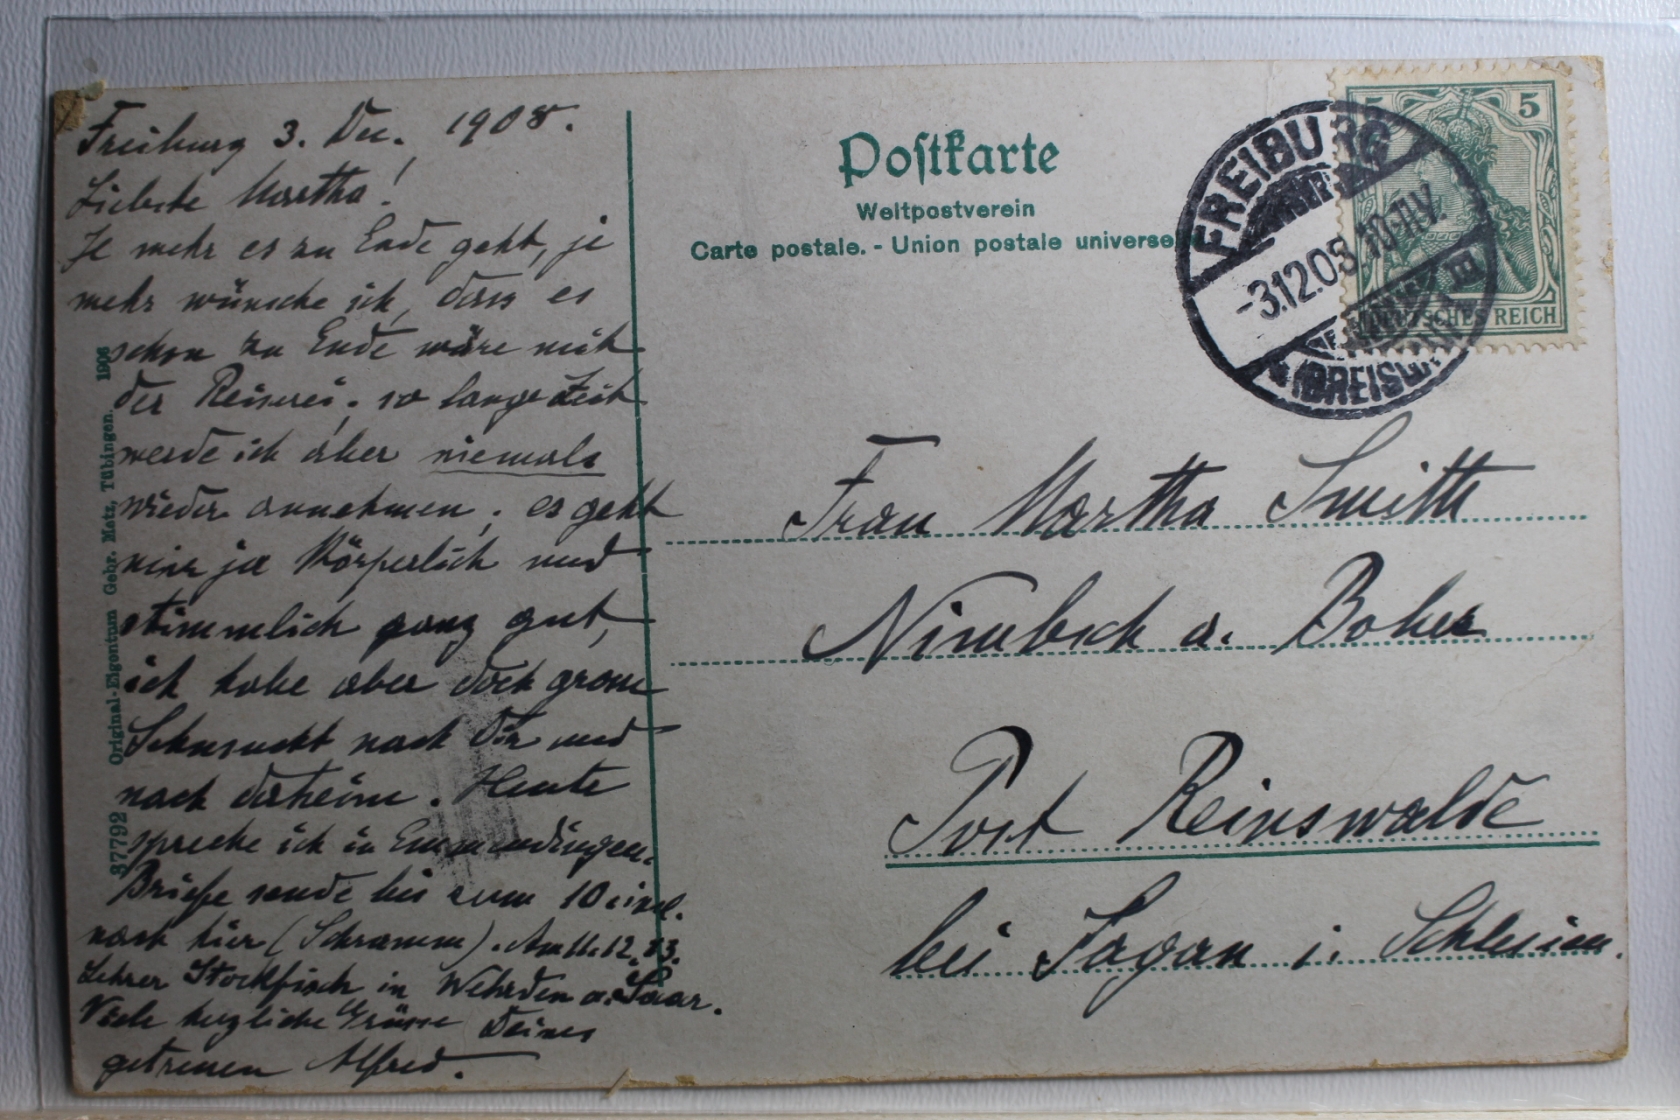 Freiburg 3. Dez. 1908.
Liebste Martha!
Je mehr es zu Ende geht, je
mehr wünsche ich, dass es
schon zu Ende wäre mit
der Reiserei; so lange Zeit
werde ich aber niemals
wieder annehmen; es geht
mir ja körperlich und
stimmlich ganz gut,
ich habe aber doch grosse
Sehnsucht nach Dir und
nach daheim. Heute
spreche ich in Emmendingen.
Briefe sende bis zum 10 incl.
nach hier (Schramm). Am 11. 12. 13.
Lehrer Stockfisch in Wehrden a. Saar.
Viele herzliche Grüsse Deines
getreuen Alfred.
37792 Original-Eigentum Gebr. Metz, Tübingen. 1906
Postkarte
Weltpostverein
Carte postale. - Union postale universe
5 5
DEUTSCHES REICH
FREIBURG
-3.12.08.10-11V.
BREISGAU
Frau Martha Smith
Nimbsch a. Bober
Post Reinswalde
bei Sagan i. Schlesien.